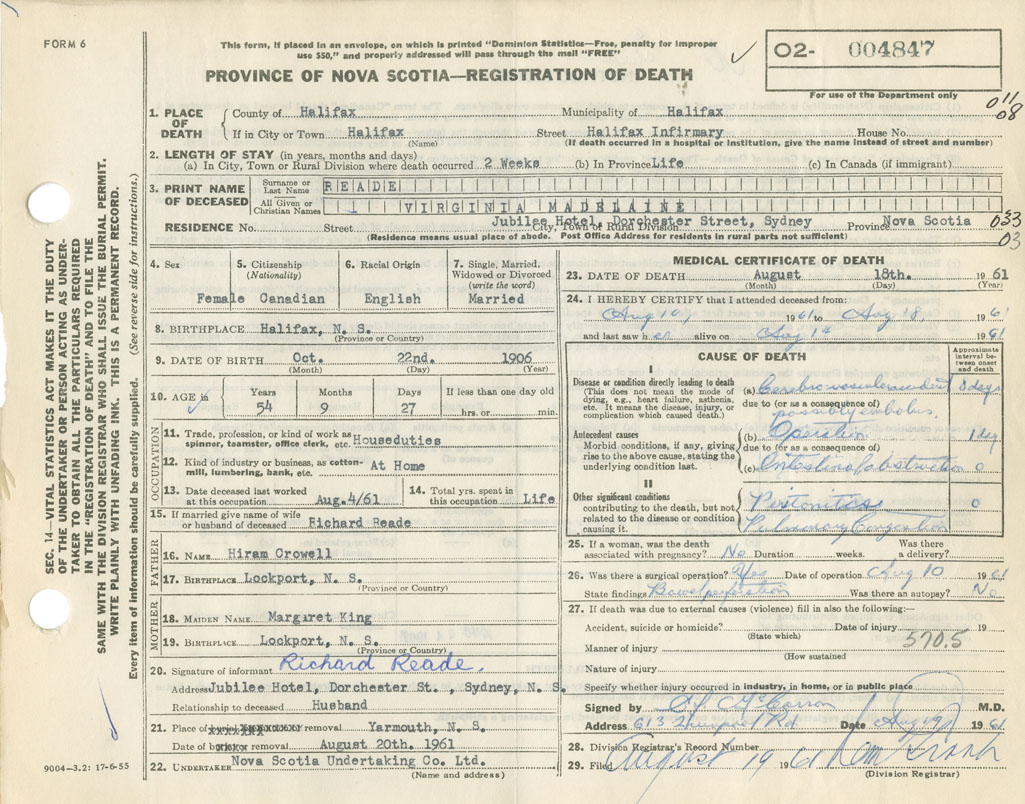 FORM 6
This form, if placed in an envelope, on which is printed "Dominion Statistics—Free, penalty for improper
use $50," and properly addressed will pass through the mail "FREE"
PROVINCE OF NOVA SCOTIA—REGISTRATION OF DEATH
02- 004847
For use of the Department only
011
08
1. PLACE OF DEATH
County of Halifax Municipality of Halifax
If in City or Town Halifax Street Halifax Infirmary House No.
(Name) (If death occurred in a hospital or institution, give the name instead of street and number)
2. LENGTH OF STAY (in years, months and days)
(a) In City, Town or Rural Division where death occurred 2 Weeks (b) In Province Life (c) In Canada (if immigrant)
3. PRINT NAME OF DECEASED
Surname or Last Name READE
All Given or Christian Names VIRGINIA MADELAINE
Jubilee Hotel, Dorchester Street, Sydney Nova Scotia 033
RESIDENCE No. Street City, Town or Rural Division Province
(Residence means usual place of abode. Post Office Address for residents in rural parts not sufficient) 03
4. Sex Female
5. Citizenship (Nationality) Canadian
6. Racial Origin English
7. Single, Married, Widowed or Divorced (write the word) Married
8. BIRTHPLACE Halifax, N. S.
(Province or Country)
9. DATE OF BIRTH Oct. 22nd. 1906
(Month) (Day) (Year)
10. AGE in Years Months Days If less than one day old
54 9 27 hrs. or min.
OCCUPATION
11. Trade, profession, or kind of work as spinner, teamster, office clerk, etc. Houseduties
12. Kind of industry or business, as cotton-mill, lumbering, bank, etc. At Home
13. Date deceased last worked at this occupation Aug.4/61
14. Total yrs. spent in this occupation Life
15. If married give name of wife or husband of deceased Richard Reade
FATHER
16. NAME Hiram Crowell
17. BIRTHPLACE Lockport, N. S.
(Province or Country)
MOTHER
18. MAIDEN NAME Margaret King
19. BIRTHPLACE Lockport, N. S.
(Province or Country)
20. Signature of informant Richard Reade.
Address Jubilee Hotel, Dorchester St. , Sydney, N. S.
Relationship to deceased Husband
21. Place of removal Yarmouth, N. S.
Date of removal August 20th. 1961
22. UNDERTAKER Nova Scotia Undertaking Co. Ltd.
(Name and address)
MEDICAL CERTIFICATE OF DEATH
23. DATE OF DEATH August 18th. 1961
(Month) (Day) (Year)
24. I HEREBY CERTIFY that I attended deceased from:
Aug 10, 1961 to Aug 18, 196
and last saw her alive on Aug 18 1961
CAUSE OF DEATH
Approximate interval between onset and death
I
Disease or condition directly leading to death
(This does not mean the mode of dying, e.g., heart failure, asthenia, etc. It means the disease, injury, or complication which caused death.)
(a) Cerebrovascular accident 8 days
due to (or as a consequence of)
possibly embolus.
Antecedent causes
Morbid conditions, if any, giving rise to the above cause, stating the underlying condition last.
(b) Operation 1 day
due to (or as a consequence of)
(c) Intestinal obstruction 0
II
Other significant conditions
contributing to the death, but not related to the disease or condition causing it.
Peritonitis 0
Pulmonary Congestion
25. If a woman, was the death associated with pregnancy? No Duration weeks. Was there a delivery?
26. Was there a surgical operation? Yes Date of operation Aug 10 1961
State findings Bowel perforation Was there an autopsy? No
27. If death was due to external causes (violence) fill in also the following:—
Accident, suicide or homicide? Date of injury 19
(State which)
Manner of injury 570.5
(How sustained
Nature of injury
Specify whether injury occurred in industry, in home, or in public place
Signed by M.D.
Address 613 Rd Date Aug 19 1961
28. Division Registrar's Record Number
29. Filed August 19 1961
(Division Registrar)
SEC. 14—VITAL STATISTICS ACT MAKES IT THE DUTY
OF THE UNDERTAKER OR PERSON ACTING AS UNDER-
TAKER TO OBTAIN ALL THE PARTICULARS REQUIRED
IN THE "REGISTRATION OF DEATH" AND TO FILE THE
SAME WITH THE DIVISION REGISTRAR WHO SHALL ISSUE THE BURIAL PERMIT.
WRITE PLAINLY WITH UNFADING INK. THIS IS A PERMANENT RECORD.
Every item of information should be carefully supplied. (See reverse side for instructions.)
9004—3.2: 17-6-55